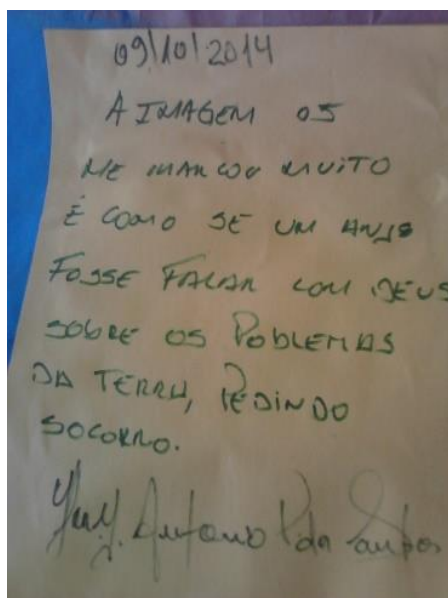 09/10/2014
A IMAGEM 05
ME MARCOU MUITO
É COMO SE UM ANJO
FOSSE FALAR COM DEUS
SOBRE OS POBLEMAS
DA TERRA, PEDINDO
SOCORRO.
Antonio dos Santos